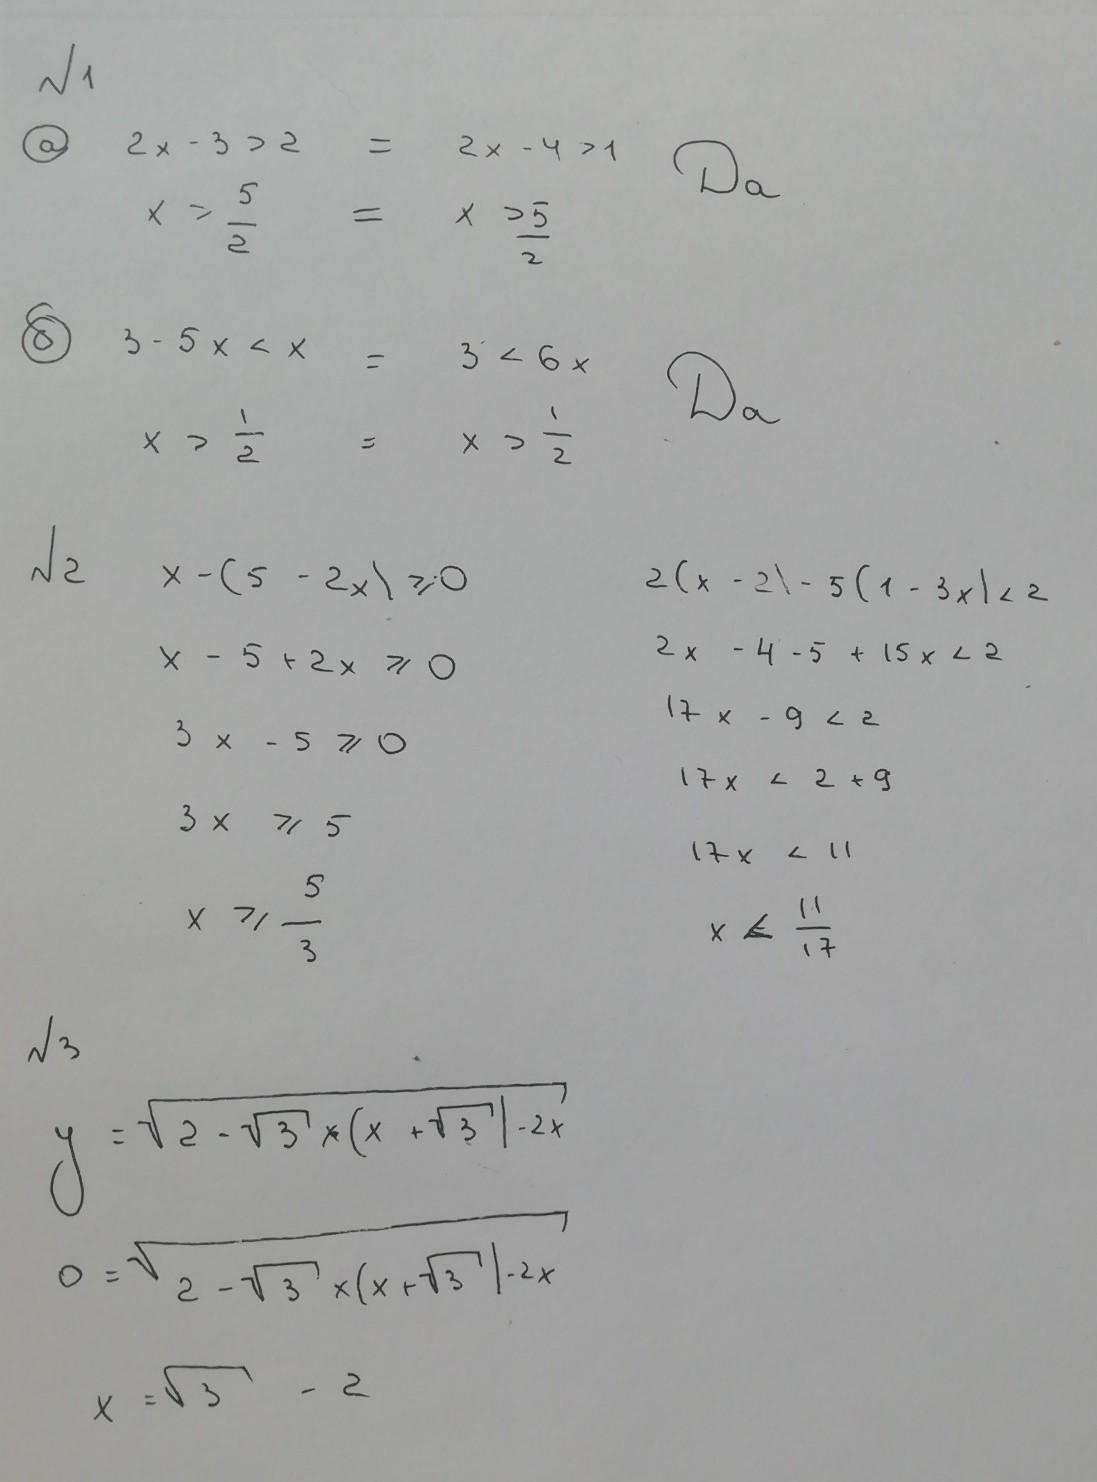 №1
а) 2x - 3 > 2 = 2x - 4 > 1 Да
x > 5/2 = x > 5/2
б) 3 - 5x < x = 3 < 6x Да
x > 1/2 = x > 1/2
№2
x - (5 - 2x) ⩾ 0
x - 5 + 2x ⩾ 0
3x - 5 ⩾ 0
3x ⩾ 5
x ⩾ 5/3
2(x - 2) - 5(1 - 3x) < 2
2x - 4 - 5 + 15x < 2
17x - 9 < 2
17x < 2 + 9
17x < 11
x < 11/17
№3
y = √(2 - √3 x(x + √3) - 2x)
0 = √(2 - √3 x(x + √3) - 2x)
x = √3 - 2